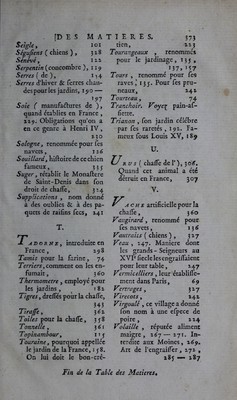 DES MATIERES. 573
Seigle, 101
Ségusiens (chiens), 328
Sénevé, 122
Serpentin (concombre), 119
Serres (de), 154
Serres d'hiver & serres chaudes
pour les jardins, 190 —
197
Soie (manufactures de),
quand établies en France,
219. Obligations qu'on a
en ce genre à Henri IV,
220
Sologne, renommée pour ses
navets, 116
Souillard, histoire de ce chien
fameux, 335
Suger, rétablit le Monastere
de Saint-Denis dans son
droit de chasse, 314
Supplications, nom donné
à des oublies & à des paquets
de raisins secs, 241
T.
TADORNE, introduite en
France, 298
Tamis pour la farine, 74
Terriers, comment on les enfumait,
360
Thermometre, employé pour
les jardins, 182
Tigres, dressés pour la chasse,
Tirasse, 362
Toiles pour la chasse, 358
Tonnelle, 361
Topinambour, 115
Touraine, pourquoi appellée
le jardin de la France, 158.
On lui doit le bon-chrétien,
225
Tourangeaux, renommés
pour le jardinage, 155,
157, 157
Tours, renommé pour ses
raves, 155. Pour ses pruneaux,
242
Tourteau, 74
Tranchoir. Voyez pain-assiette.
Trianon, son jardin célèbre
par ses raretés, 191. Fameux
sous Louis XV, 189
U.
URUS (chasse de l'), 306.
Quand cet animal a été
détruit en France, 307
V.
VACHE artificielle pour la
chasse, 360
Vaugirard, renommé pour
ses navets, 116
Vautraits (chiens), 327
Veau, 247. Maniere dont
les grands-Seigneurs au
XVIe siecle les engraissaient
pour leur table, 247
Vermicelliers, leur établissement
dans Paris, 69
Verveges, 327
Virecote, 242
Virgoulé, ce village a donné
son nom à une espece de
poire, 224
Volaille, réputée aliment
maigre, 267 — 271. Interdite
aux Moines, 269.
Art de l'engraisser, 272,
285 — 287
Fin de la Table des Matieres.